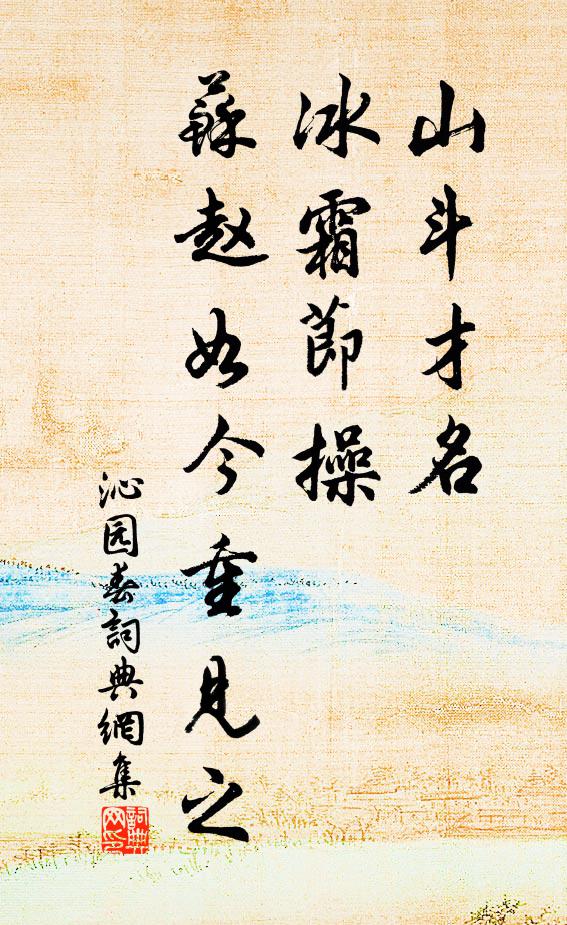 山斗才名
冰霜節操
蘇赵如今重見之
沁园春詞典網集
詞典
网印